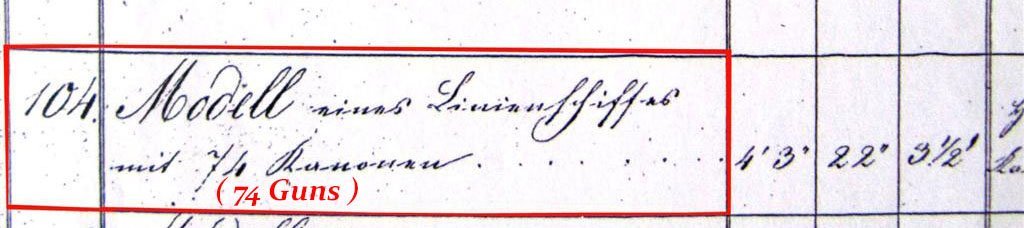 104. Modell eines Linienschiffes
mit 74 Kanonen . . . . . . . 4' 3" 22" 3 1/2'
( 74 Guns )